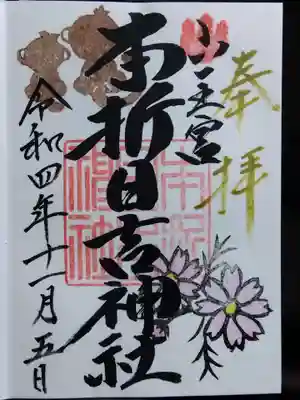 奉拝
山王宮
本折日吉神社
令和四年十一月五日